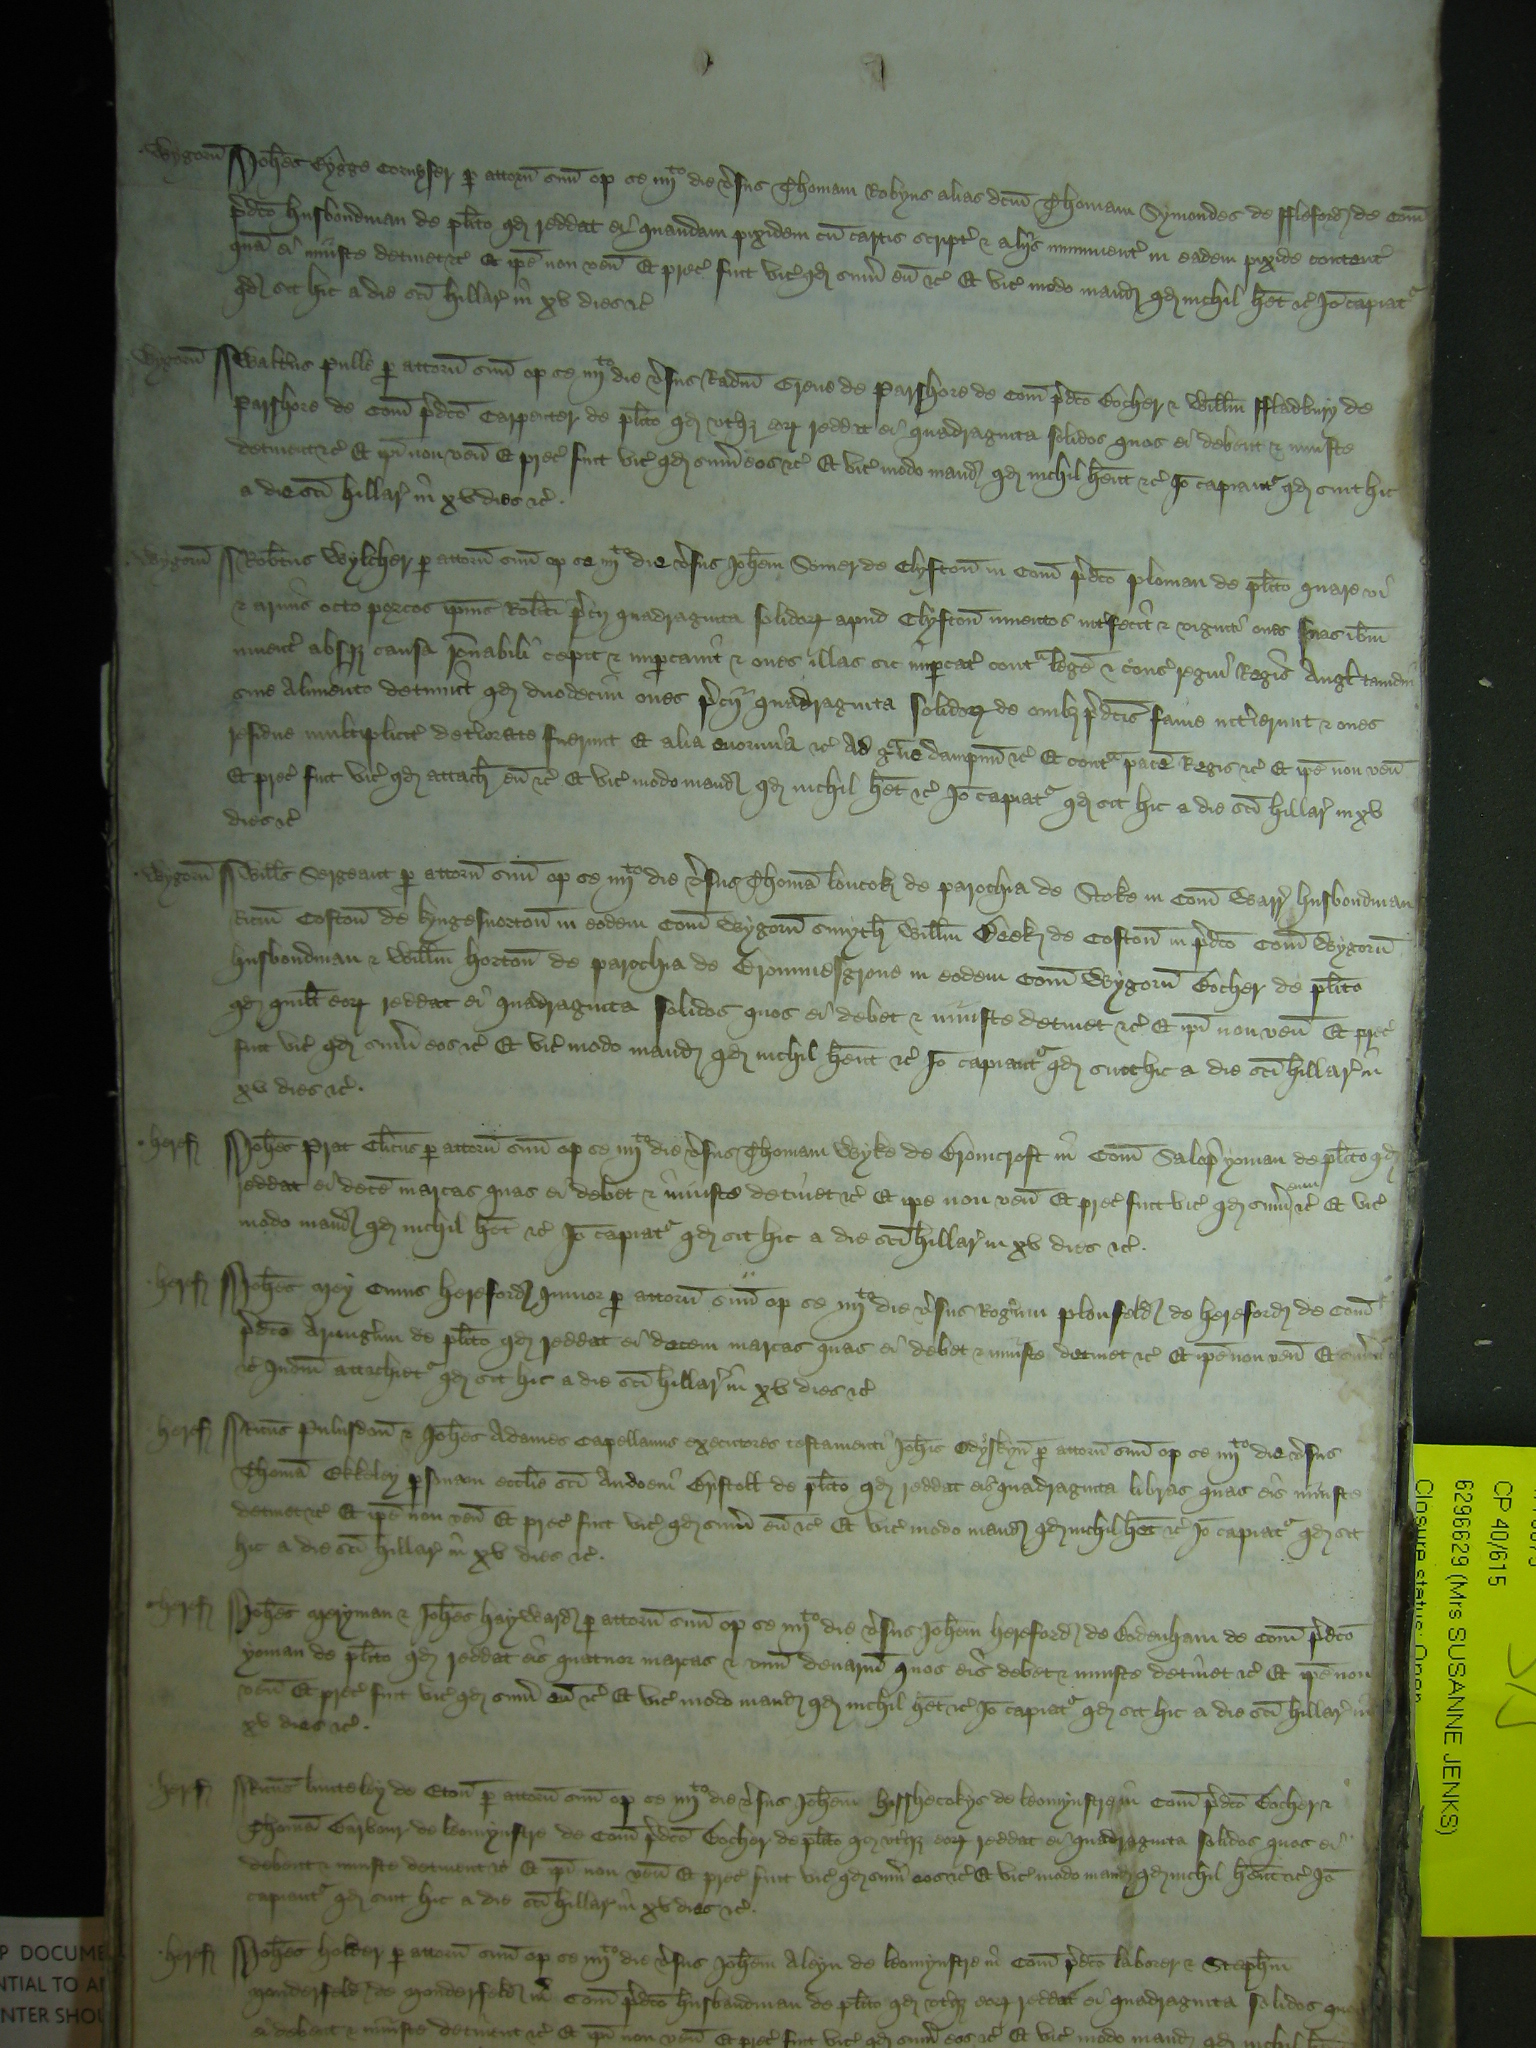 Wygorn̄ Joh̄es Cygge Cornyser p̱ attorn̄ suū op se iiijto die v̓sus Thomam Robyns alias dc̄m Thomam Symondes de ffleford de Com̄
p̓dc̄o husbondman de pl̄ito qd reddat ei quandam pixidem cū cartis script̓ & alijs muniment̓ in eadem pixide content̓
quā ei iniuste detinet &c̓ Et ip̄e non ven̄ Et prec̓ fuit vic̓ qd sum̄ eū &c̓ Et vic̓ modo mand̓ qd nichil h̄et &c̓ Iō capiat̓
qd sit hic a die sc̄i hillar̓ in xv dies &c̓
Wygorn̄ Walt̓us Pulle p̱ attorn̄ suū op se iiijto die v̓sus Radm̄ Greue de Parshore de Com̄ p̓dc̄o Bocher & Will̄m ffladbury de
Parshore de Com̄ p̓dc̄o Carpenter de pl̄ito qd vt̓q̨ eoꝝ reddat ei quadraginta solidos quos ei debent & iniuste
detinent &c̓ Et ip̄i non ven̄ Et prec̓ fuit vic̓ qd sum̄ eos &c̓ Et vic̓ modo mand̓ qd nichil h̄ent &c̓ Iō capiant̓ qd sint hic
a die sc̄i hillar̓ in xv dies &c̓.
Wygorn̄ Rob̄tus Wylcher p̱ attorn̄ suū op se iiijto die v̓sus Joh̄em Somer de Clyfton̄ in Com̄ p̓dc̄o ploman de pl̄ito quare vi
& armis octo porcos ip̄ius Rob̄ti p̓cij quadraginta solidoꝝ apud Clyfton̄ inuentos int̓fecit & viginti oues suas ib̄m
inuent̓ absq̨ causa rōnabili cepit & inp̱cauit & oues illas sic inp̱cat̓ cont̓ legē & cons̓ regni Regis Angl̓ tamdiu
sine alimento detinuit qd duodecim oues p̓cij quadraginta solidoꝝ de ouib̨ p̓dc̄is fame int̓ierunt & oues
residue multiplicit̓ det̓iorate fuerunt Et alia enormia &c̓ Ad g̓ue dampnū &c̓ Et cont̓ pacē Regis &c̓ Et ip̄e non ven̄
Et prec̓ fuit vic̓ qd attach̄ eū &c̓ Et vic̓ modo mand̓ qd nichil h̄et &c̓ Iō capiat̓ qd sit hic a die sc̄i hillar̓ in xv
dies &c̓
Wygorn̄ Will̄s Sergeant p̱ attorn̄ suū op se iiijto die v̓sus Thomā loucok de parochia de Stoke in Com̄ Warr̓ husbondman
Ricm̄ Cofton̄ de kyngesnorton̄ in eodem Com̄ Wygorn̄ smyth̄ Will̄m Geek de Cofton̄ in p̓dc̄o Com̄ Wygorn̄
husbondman & Will̄m horton̄ de parochia de Brommesgroue in eodem Com̄ Wygorn̄ Bocher de pl̄ito
qd quil̄t eoꝝ reddat ei quadraginta solidos quos ei debet & iniuste detinet &c̓ Et ip̄i non ven̄ Et prec̓
fuit vic̓ qd sum̄ eos &c̓ Et vic̓ modo mand̓ qd nichil h̄ent &c̓ Iō capiant̓ qd sint hic a die sc̄i hillar̓ in
xv dies &c̓.
heref̓ Joh̄es Prat Cl̄icus p̱ attorn̄ suū op se iiijto die v̓sus Thomam Wyke de Bromcroft in Com̄ Salop̓ yoman de pl̄ito qd
reddat ei decē marcas quas ei debet & iniuste detinet &c̓ Et ip̄e non ven̄ Et prec̓ fuit vic̓ qd sum̄ eum &c̓ Et vic̓
modo mand̓ qd nichil h̄et &c̓ Iō capiat̓ qd sit hic a die sc̄i hillar̓ in xv dies &c̓.
heref̓ Joh̄es Mey Ciuis hereford Junior p̱ attorn̄ suū op se iiijto die v̓sus Rog̓um Plonfeld de hereford de Com̄
p̓dc̄o Armig̓um de pl̄ito qd reddat ei decem marcas quas ei debet & iniuste detinet &c̓ Et ip̄e non ven̄ Et sum̄
&c̓ Judm̄ attachiet̓ qd sit hic a die sc̄i hillar̓ in xv dies &c̓
heref̓ Ricus Pulusdon̄ & Joh̄es Adames Capellanus executores testamenti Joh̄is Odyskyn̄ p̱ attorn̄ suū op se iiijto die v̓sus
Thomā Ekkeley p̱sonam eccl̄ie sc̄i Audoeni Bristoll de pl̄ito qd reddat eis quadraginta libras quas eis iniuste
detinet &c̓ Et ip̄e non ven̄ Et prec̓ fuit vic̓ qd sum̄ eū &c̓ Et vic̓ modo mand̓ qd nichil h̄et &c̓ Iō capiat̓ qd sit
hic a die sc̄i hillar̓ in xv dies &c̓.
heref̓ Joh̄es Meryman & Joh̄es hayward p̱ attorn̄ suū op se iiijto die v̓sus Joh̄em hereford de Bodenham de Com̄ p̓dc̄o
yoman de pl̄ito qd reddat eis quatuor marcas & vnū denariū quos eis debet & iniuste detinet &c̓ Et ip̄e non
ven̄ Et prec̓ fuit vic̓ qd sum̄ eū &c̓ Et vic̓ modo mand̓ qd nichil h̄et &c̓ Iō capiat̓ qd sit hic a die sc̄i hillar̓ in
xv dies &c̓.
heref̓ Ricus lunteley de Eton̄ p̱ attorn̄ suū op se iiijto die v̓sus Joh̄em hopshecokys de leomynstre in Com̄ p̓dc̄o Bocher &
Thomā Barbour de leomynstre de Com̄ p̓dc̄o Bocher de pl̄ito qd vt̓q̨ eoꝝ reddat ei quadraginta solidos quos ei
debent & iniuste detinent &c̓ Et ip̄i non ven̄ Et prec̓ fuit vic̓ qd sum̄ eos &c̓ Et vic̓ modo mand̓ qd nichil h̄ent &c̓ Iō
capiant̓ qd sint hic a die sc̄i hillar̓ in xv dies &c̓.
heref̓ Joh̄es holder p̱ attorn̄ suū op se iiijto die v̓sus Joh̄em Aleyn de leomynstre in Com̄ p̓dc̄o laborer & Steph̄m
Monderfeld de Monderfeld in Com̄ p̓dc̄o husbandman de pl̄ito qd vt̓q̨ eoꝝ reddat ei quadraginta solidos quos
ei debent & iniuste detinent &c̓ Et ip̄i non ven̄ Et prec̓ fuit vic̓ qd sum̄ eos &c̓ Et vic̓ modo mand̓ qd nichil
CP 40/615
6296629 (Mrs SUSANNE JENKS)
Closure status: Open
P DOCUME
NTIAL TO A
NTER SHOU